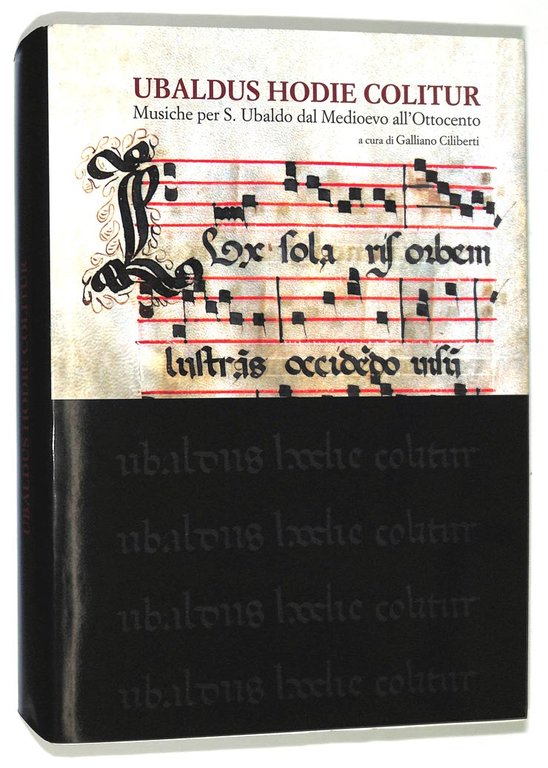 UBALDUS HODIE COLITUR
Musiche per S. Ubaldo dal Medioevo all'Ottocento
a cura di Galliano Ciliberti
Lux sola ris orbem
lustrãs occidẽdo
ubaldus hodie colitur
ubaldus hodie colitur
ubaldus hodie colitur
ubaldus hodie colitur
UBALDUS HODIE COLITUR